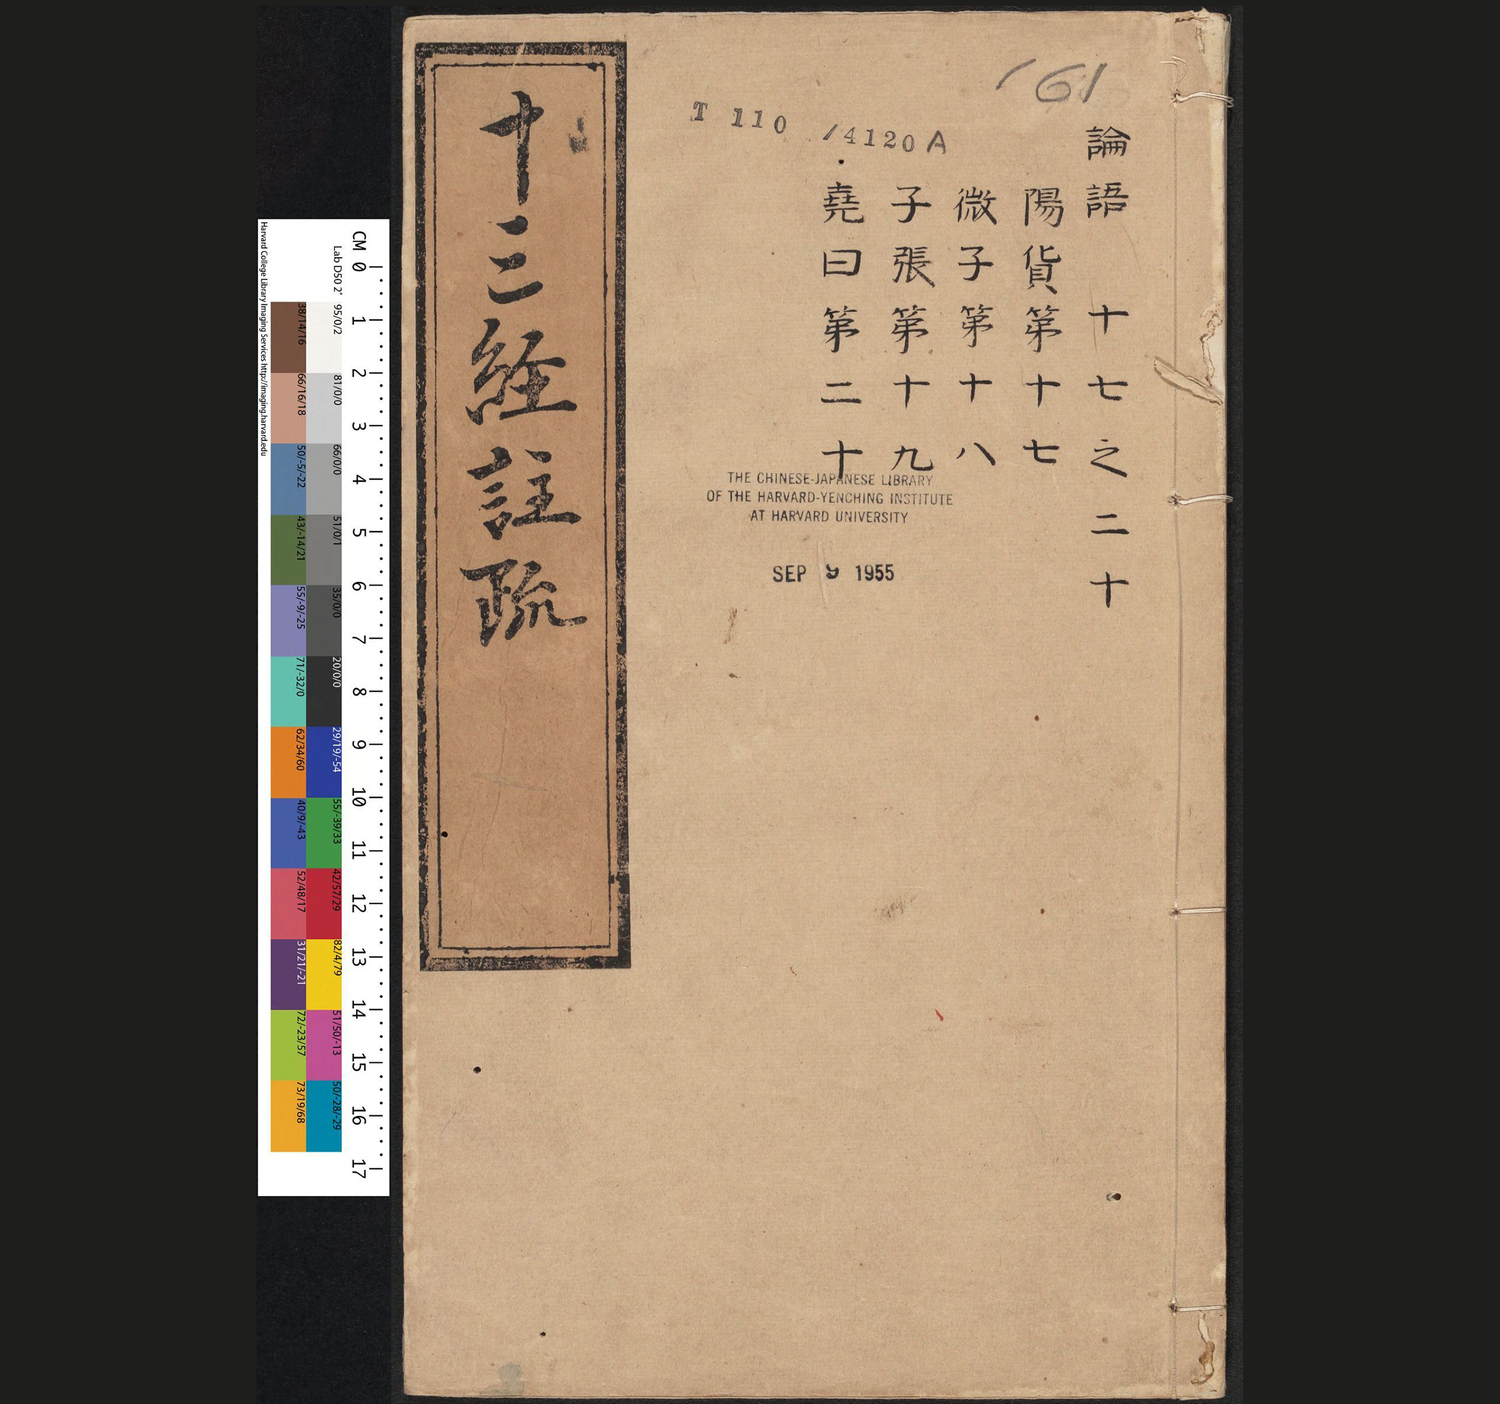 十三経註疏
161
T 110 /4120 A
論語 十七之二十
陽貨第十七
微子第十八
子張第十九
堯曰第二十
THE CHINESE-JAPANESE LIBRARY
OF THE HARVARD-YENCHING INSTITUTE
AT HARVARD UNIVERSITY
SEP 9 1955
CM 0 1 2 3 4 5 6 7 8 9 10 11 12 13 14 15 16 17
Lab D50 2° 95/0/2 81/0/0 66/0/0 51/0/1 35/0/0 20/0/0 29/19/-54 55/-39/33 42/57/29 82/4/79 51/50/-13 50/-28/-29
38/14/16 66/16/18 50/-5/-22 43/-14/21 55/-9/-25 71/-32/0 62/34/60 40/9/-43 52/48/17 31/21/-21 72/-23/57 73/19/68
Harvard College Library Imaging Services http://imaging.harvard.edu